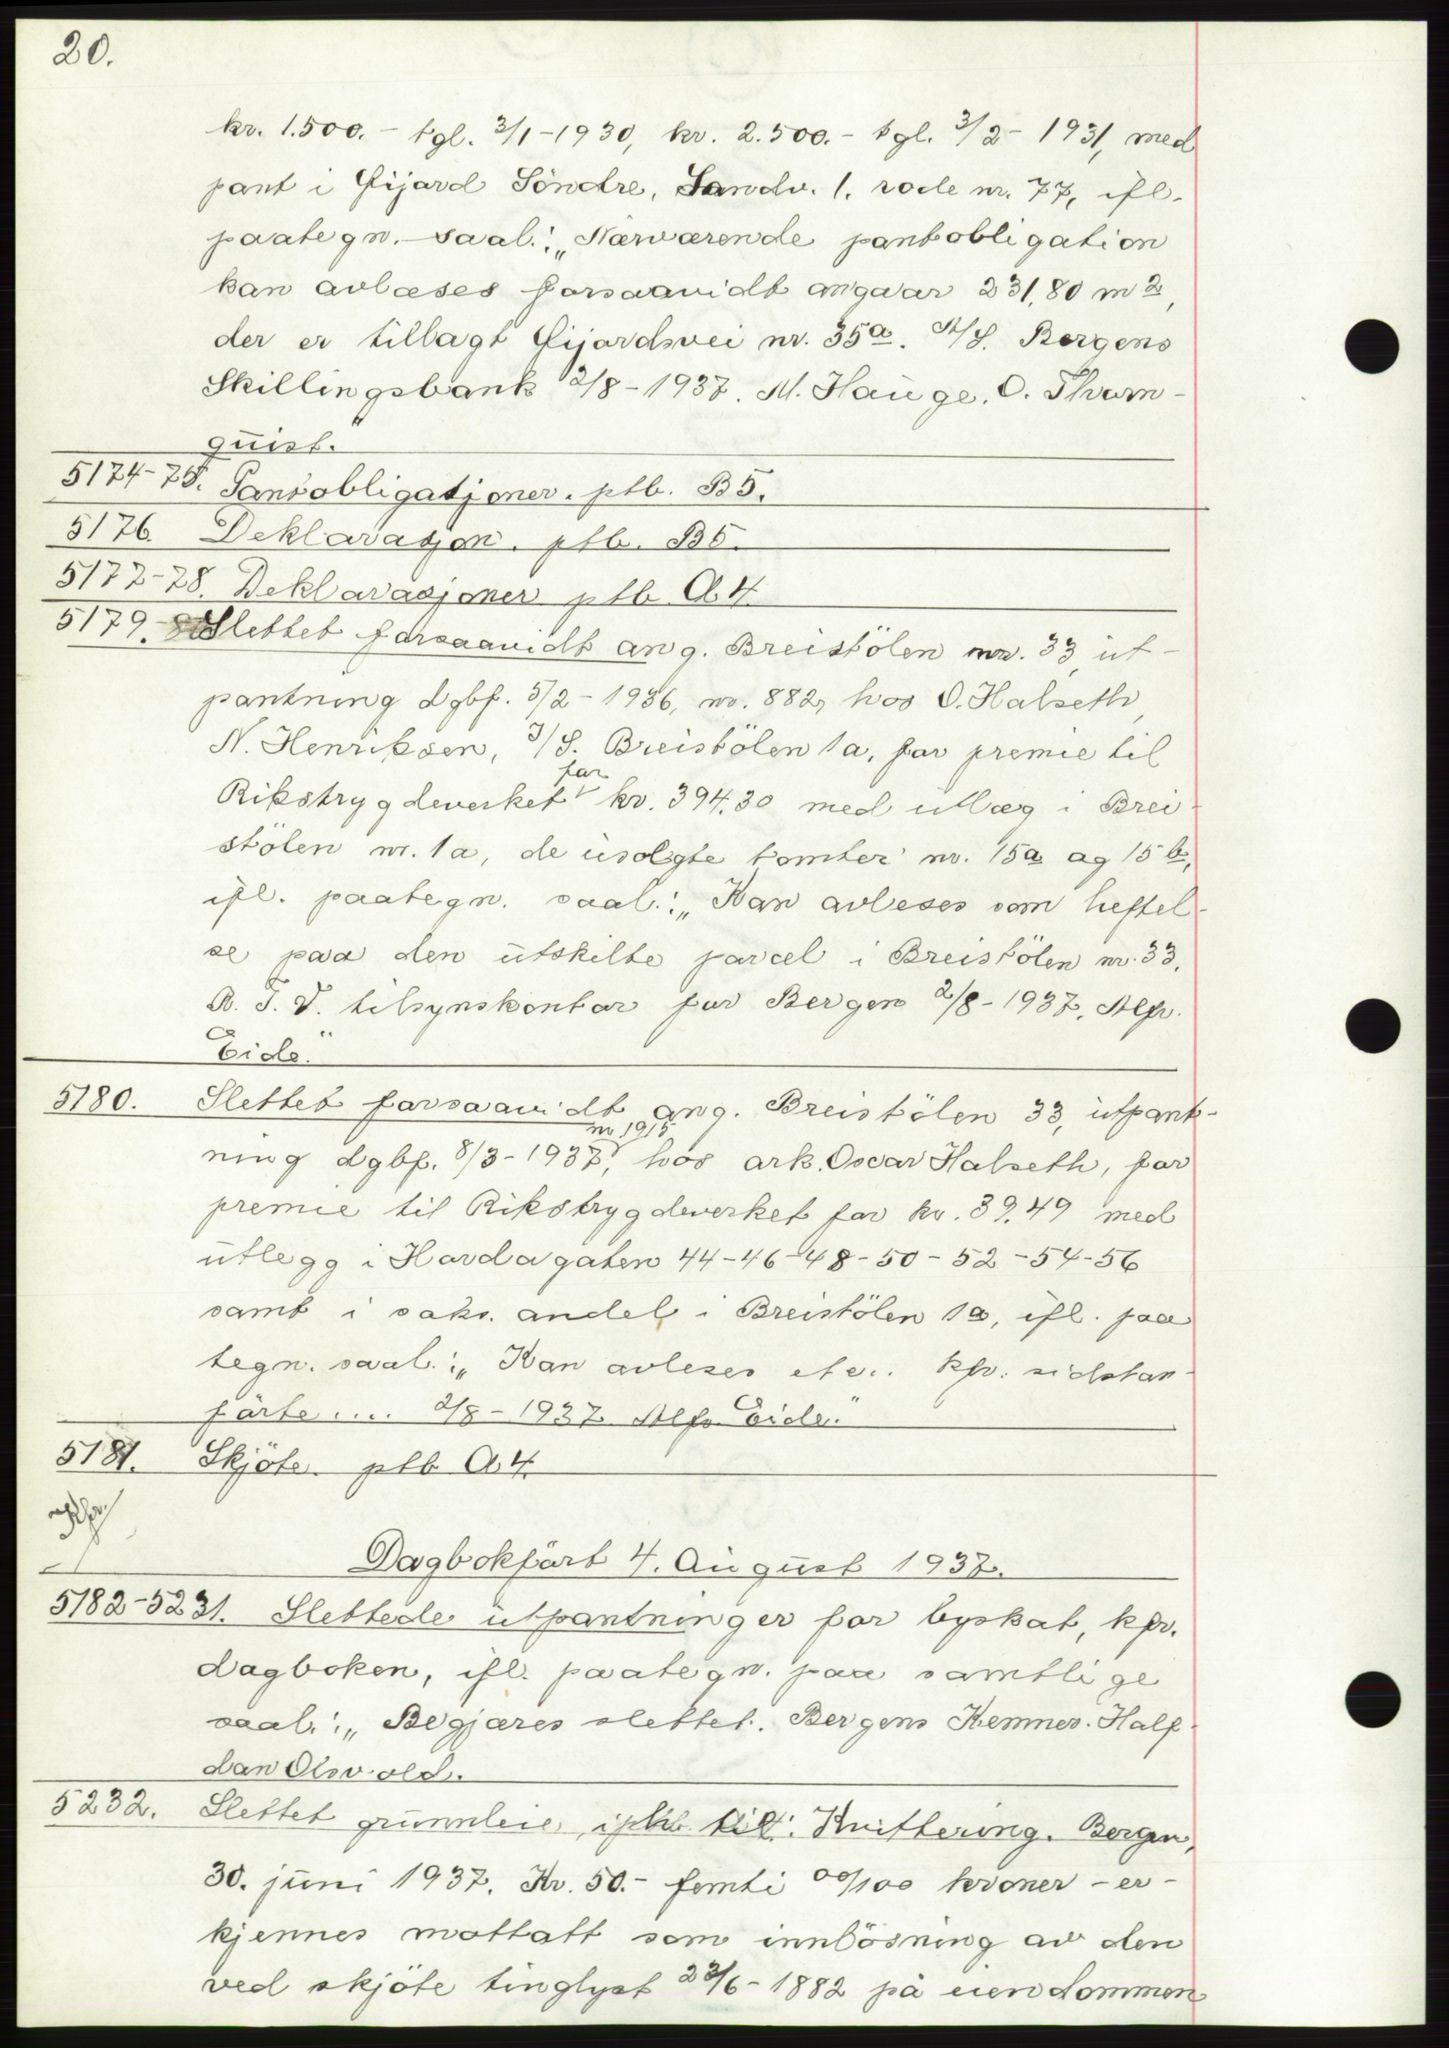 20.
kr. 1.500.- tgl. 3/1-1930, kr. 2.500.- tgl. 3/2-1931, med
pant i Gijard Söndre, Landv. 1. rode nr. 77, ifl.
paategn. saal.: „Nærværende pantobligation
kan avlæses forsaavidt angaar 231,80 m2,
der er tillagt Gijardsvei nr. 35a. A/S. Bergens
Skillingsbank 2/8-1937. M. Hauge. O. Thorn-
quist."
5174-75. Pantobligatjoner. ptb. B5.
5176. Deklarasjon. ptb. B5.
5177-78. Deklarasjoner ptb A4.
5179. Slettet forsaavidt ang. Breistölen nr. 33, ut-
pantning dgbf. 5/2-1936, nr. 882, hos O. Halseth,
N. Henriksen, I/S. Breistölen 1a, for premie til
Rikstrygdeverket for kr. 394.30 med utlæg i Brei-
stölen nr. 1a, de usolgte tomter nr. 15a og 15b,
ifl. paategn. saal.: „Kan avleses som heftel-
se paa den utskilte parcel i Breistölen nr. 33.
R. T. V. tilsynskontor for Bergen 2/8-1937. Alfr.
Eide."
5180. Slettet forsaavidt ang. Breistölen 33, utpant-
ning dgbf. 8/3-1937, nr 1915 hos ark. Oscar Halseth, for
premie til Rikstrygdeverket for kr. 39.49 med
utlegg i Hardagaten 44-46-48-50-52-54-56
samt i saks. andel i Breistölen 1a, ifl. paa
tegn. saal.: „Kan avleses etc.. kfr. sidstan-
förte .... 2/8-1937 Alfr Eide."
5181. Skjöte. ptb A4.
Dagbokfört 4. August 1937.
5182-5231. Slettede utpantninger for byskat, kfr.
dagboken, ifl. paategn. paa samtlige
saal.: „Begjæres slettet. Bergens Kemner. Half-
dan Olsvold.
5232. Slettet grunnleie, Kvittering. Bergen,
30. juni 1937. Kr. 50.- femti 00/100 kroner - er-
kjennes mottatt som innlösning av den
ved skjöte tinglyst 23/6-1882 på eiendommen